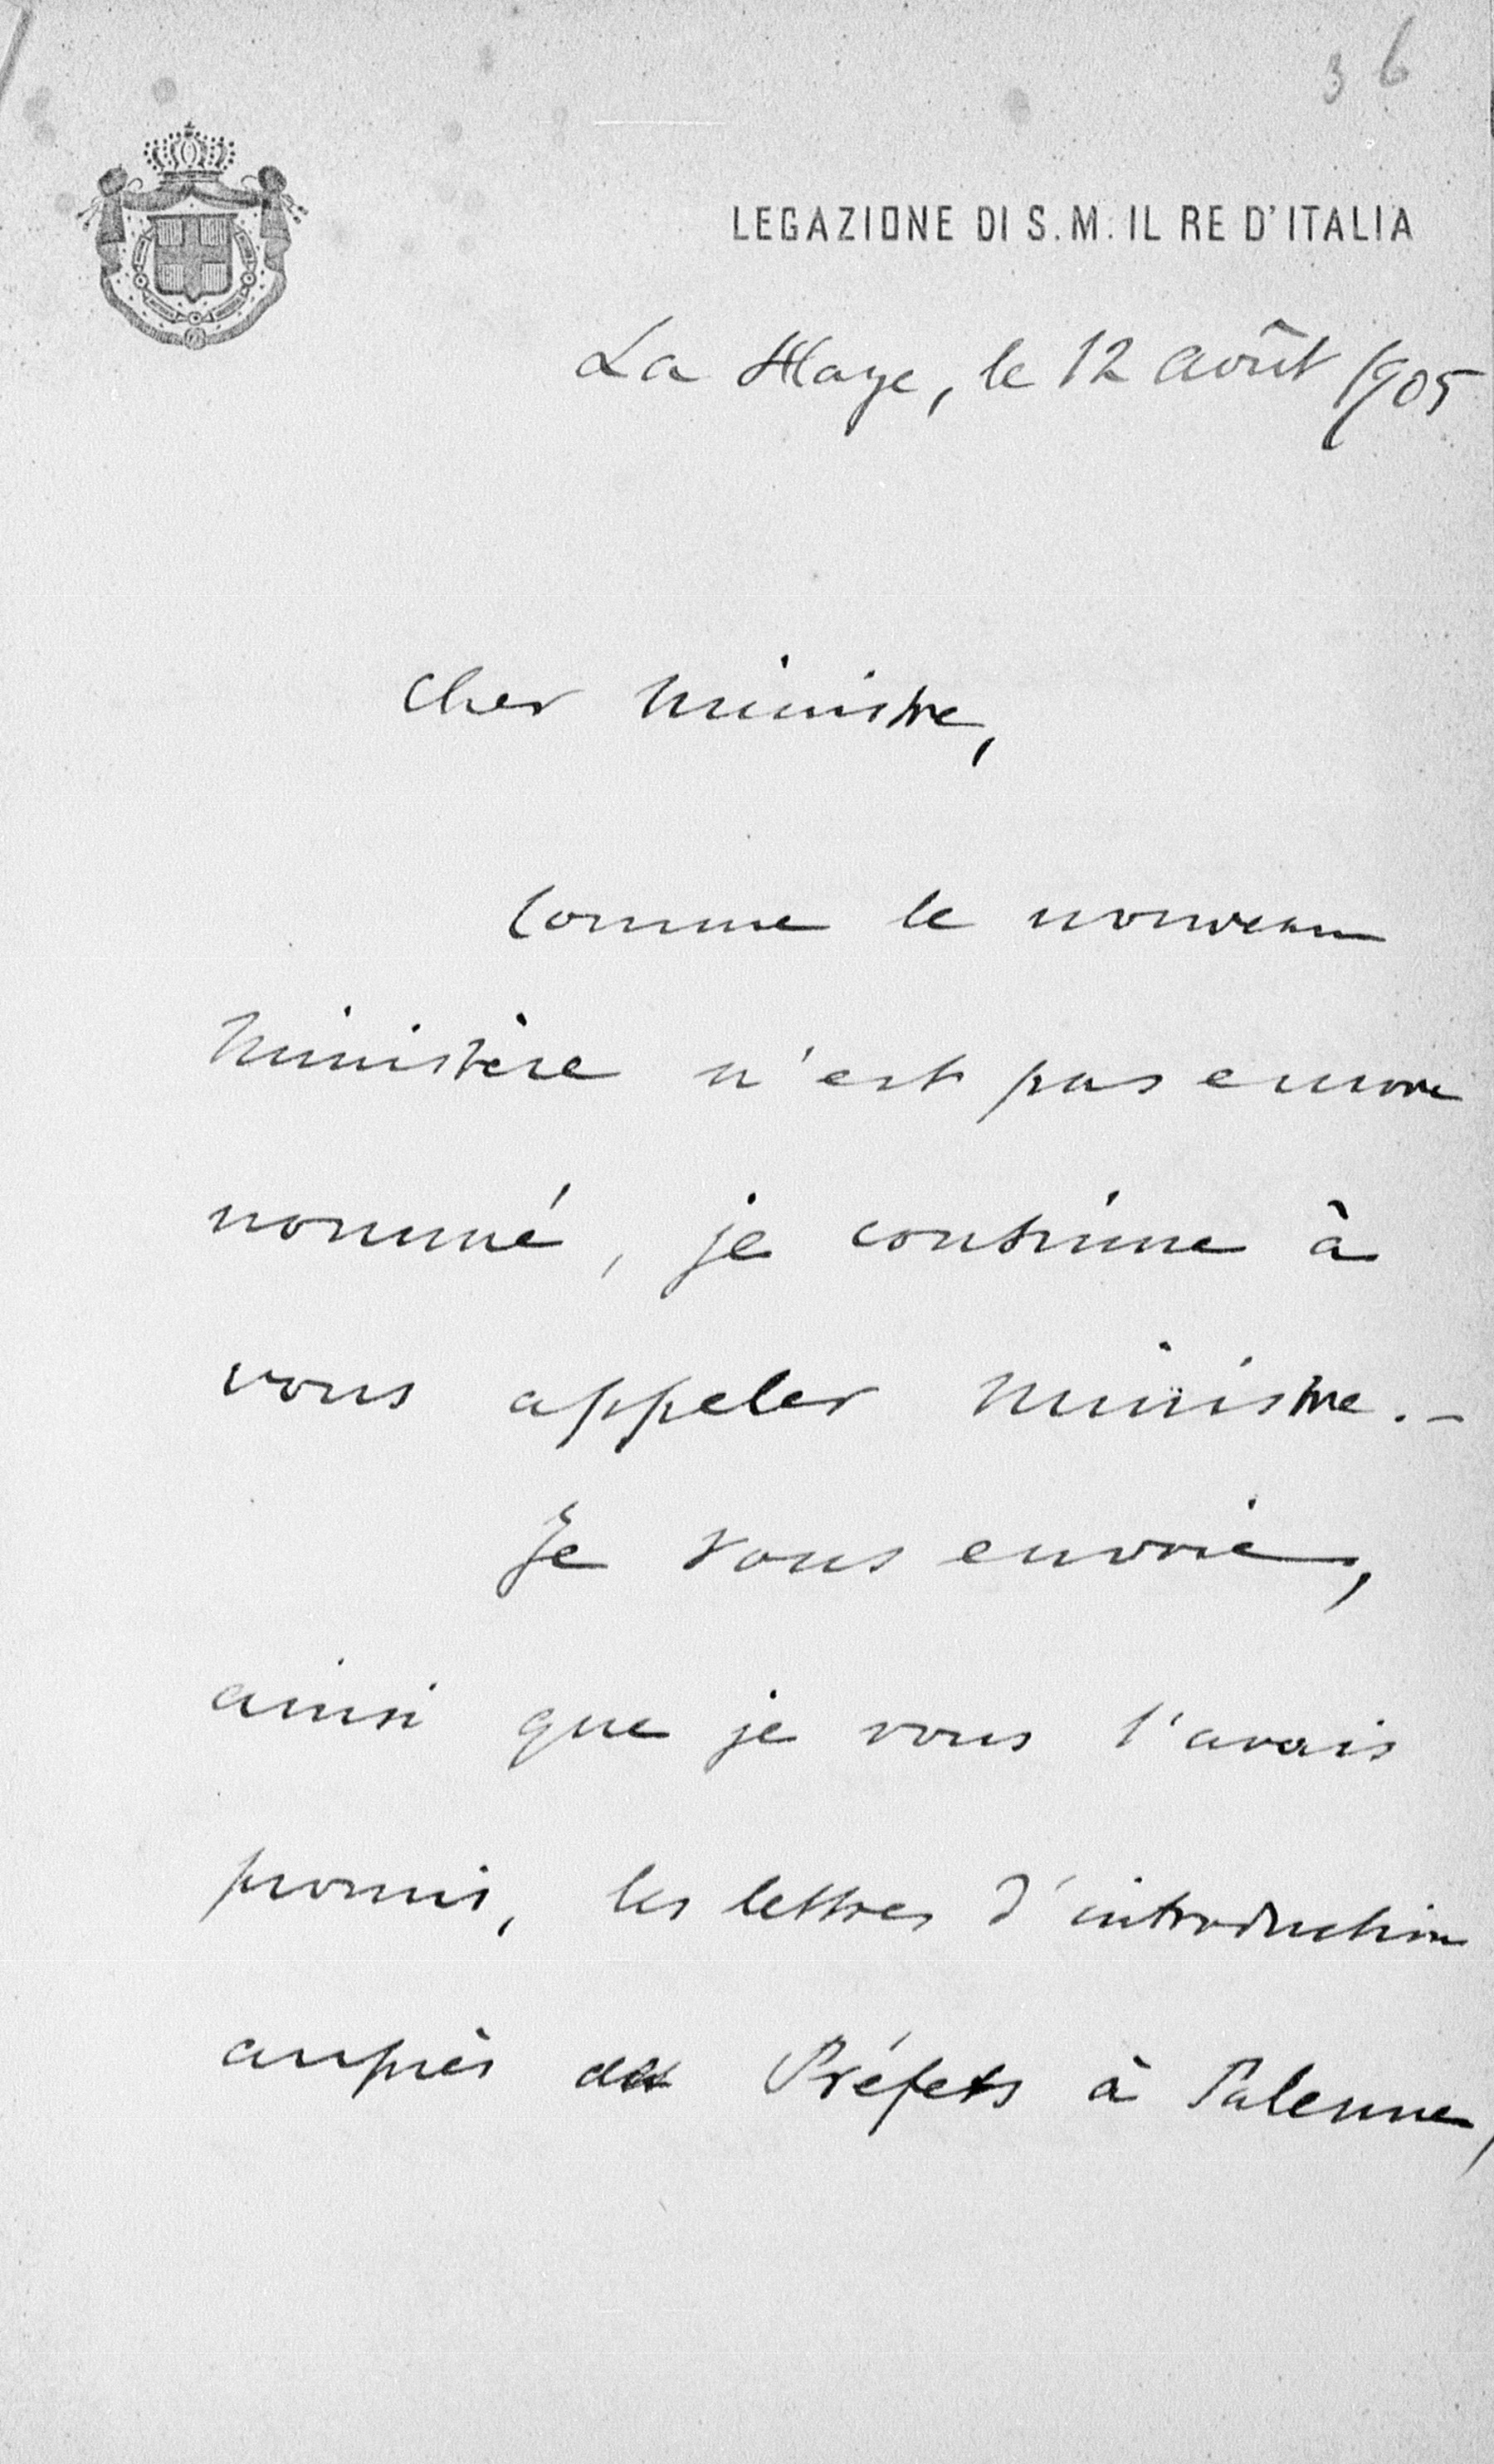 36
LEGAZIONE DI S. M. IL RE D'ITALIA
La Haye, le 12 août 1905
Cher Ministre,
Comme le nouveau
Ministère n'est pas encore
nommé, je continue à
vous appeler Ministre. -
Je vous envoie,
ainsi que je vous l'avais
promis, les lettres d'introduction
auprès des Préfets à Palerme,